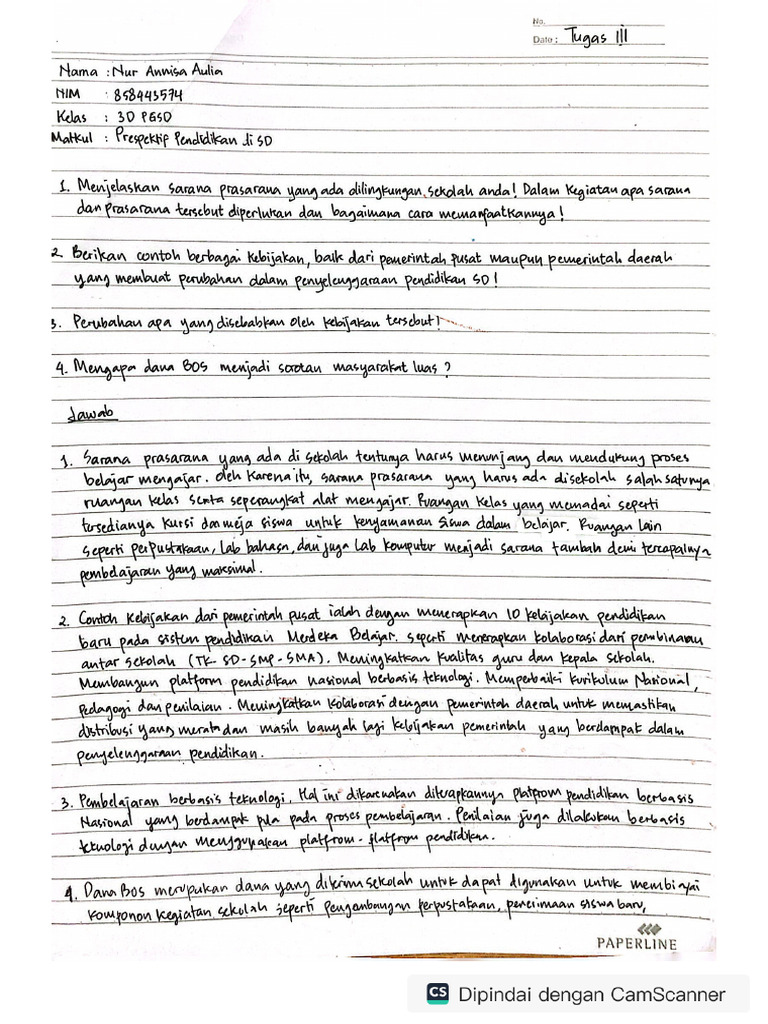 No.
Date: Tugas III
Nama : Nur Annisa Aulia
NIM : 858443574
Kelas : 3D PGSD
Matkul : Prespektif Pendidikan di SD
1. Menjelaskan sarana prasarana yang ada dilingkungan sekolah anda! Dalam kegiatan apa sarana
dan prasarana tersebut diperlukan dan bagaimana cara memanfaatkannya!
2. Berikan contoh berbagai kebijakan, baik dari pemerintah pusat maupun pemerintah daerah
yang membuat perubahan dalam penyelenggaraan pendidikan SD!
3. Perubahan apa yang disebabkan oleh kebijakan tersebut!
4. Mengapa dana BOS menjadi sorotan masyarakat luas?
Jawab
1. Sarana prasarana yang ada di sekolah tentunya harus menunjang dan mendukung proses
belajar mengajar. Oleh karena itu, sarana prasarana yang harus ada disekolah salah satunya
ruangan kelas serta seperangkat alat mengajar. Ruangan kelas yang memadai seperti
tersedianya kursi dan meja siswa untuk kenyamanan siswa dalam belajar. Ruangan lain
seperti perpustakaan, lab bahasa, dan juga lab komputer menjadi sarana tambah demi tercapainya
pembelajaran yang maksimal.
2. Contoh kebijakan dari pemerintah pusat ialah dengan menerapkan 10 kebijakan pendidikan
baru pada sistem pendidikan Merdeka Belajar. seperti menerapkan kolaborasi dari pembinaan
antar sekolah (TK-SD-SMP-SMA). Meningkatkan kualitas guru dan kepala sekolah.
Membangun platform pendidikan nasional berbasis teknologi. Memperbaiki kurikulum Nasional,
pedagogi dan penilaian. Meningkatkan kolaborasi dengan pemerintah daerah untuk memastikan
distribusi yang merata dan masih banyak lagi kebijakan pemerintah yang berdampak dalam
penyelenggaraan pendidikan.
3. Pembelajaran berbasis teknologi. Hal ini dikarenakan diterapkannya platfrom pendidikan berbasis
Nasional yang berdampak pula pada proses pembelajaran. Penilaian juga dilakukan berbasis
teknologi dengan menggunakan platfrom-platfrom pendidikan.
4. Dana BOS merupakan dana yang dikirim sekolah untuk dapat digunakan untuk membiayai
komponen kegiatan sekolah seperti pengembangan perpustakaan, penerimaan siswa baru,
PAPERLINE
CS Dipindai dengan CamScanner